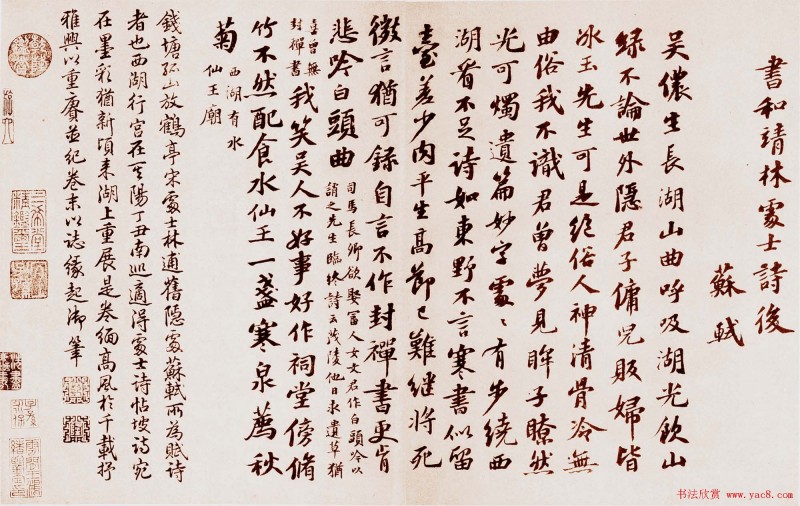 書和靖林處士詩後
蘇軾
吳儂生長湖山曲呼吸湖光飲山
綠不論世外隱君子傭兒販婦皆
冰玉先生可是絕俗人神清骨冷無
由俗我不識君曾夢見眸子瞭然
光可燭遺篇妙字處〻有步繞西
湖看不足詩如東野不言寒書似留
臺差少肉平生高節已難繼將死
微言猶可錄自言不作封禪書更肯
悲吟白頭曲
司馬長卿欲娶富人女文君作白頭吟以
誚之先生臨終詩云茂陵他日求遺草猶
喜曾無
封禪書
我笑吳人不好事好作祠堂傍脩
竹不然配食水仙王一盞寒泉薦秋
菊
西湖有水
仙王廟
錢塘孤山放鶴亭宋處士林逋舊隱處蘇軾所為賦詩
者也西湖行宮在其陽丁丑南巡適得處士詩帖坡詩宛
在墨彩猶新頃来湖上重展是卷緬高風於千載抒
雅興以重賡並紀卷末以誌緣起御筆
书法欣赏 www.yac8.com